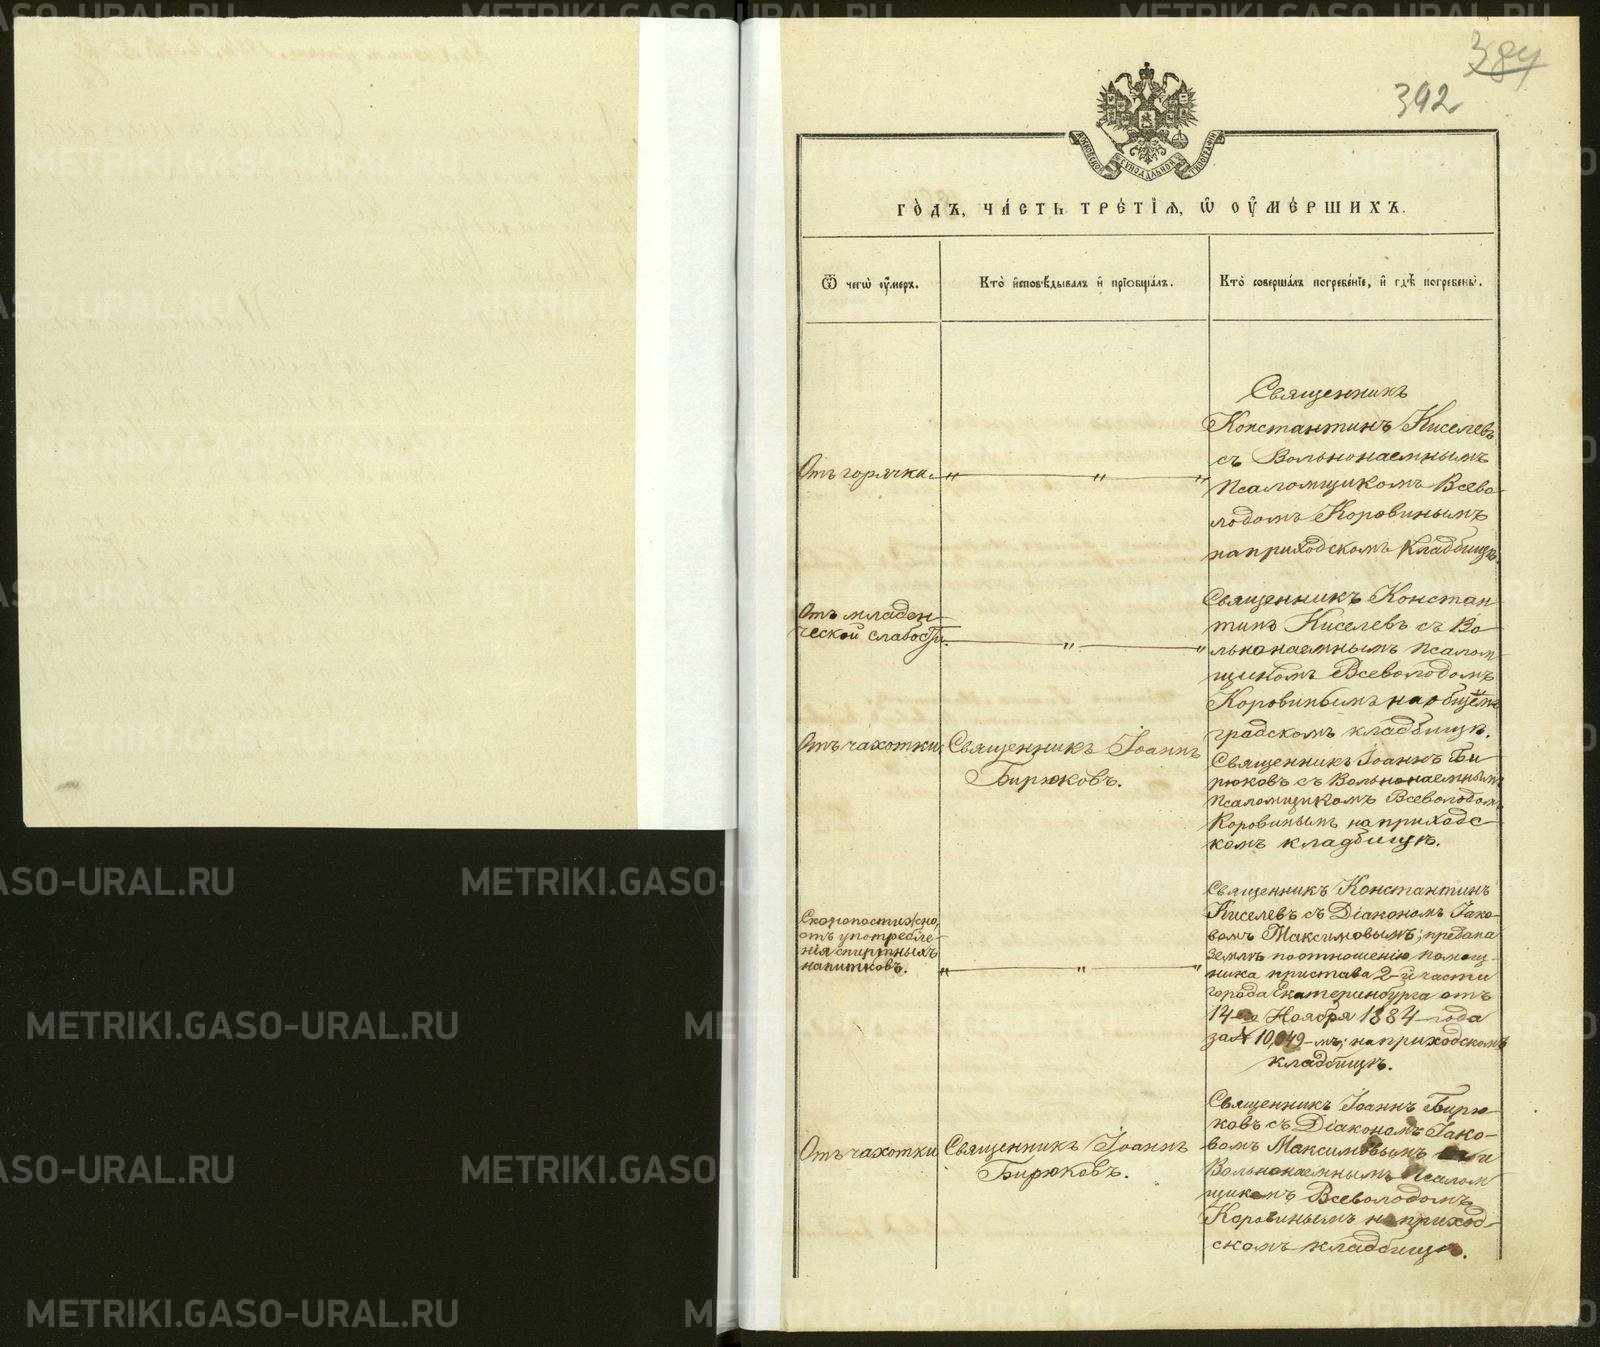 384
392
МОСКОВСКОЙ СѴНОДАЛЬНОЙ ТИПОГРАФІИ
ГО́ДЪ, ЧА́СТЬ ТРЕ́ТІѦ, Ѡ҆ ОУ҆МЕ́РШИХЪ.
Ѿ чегѡ̀ оу҆́меръ.
Кто̀ и҆сповѣ́дывалъ и҆ прїѻбща́лъ.
Кто̀ соверша́лъ погребе́нїе, и҆ гдѣ̀ погребены̀.
Отъ горячки
" " "
Священникъ
Константинъ Киселевъ
съ Вольнонаемнымъ
Псаломщикомъ Всево-
лодомъ Коровинымъ
на приходскомъ кладбищѣ.
Отъ младен-
ческой слабости.
" "
Священникъ Констан
тинъ Киселевъ съ Во-
льнонаемнымъ псалом-
щикомъ Всеволодомъ
Коровинымъ на общемъ
градскомъ кладбищѣ.
Отъ чахотки
Священникъ Іоаннъ
Бирюковъ.
Священникъ Іоаннъ Би
рюковъ съ Вольнонаемнымъ
псаломщикомъ Всеволодомъ
Коровинымъ на приходс
комъ кладбищѣ.
Скоропостижно,
отъ употребле-
нія спиртныхъ
напитковъ.
" " "
Священникъ Константинъ
Киселевъ съ Діакономъ Іако-
вомъ Максимовымъ; предана
землѣ по отношенію помощ-
ника пристава 2-й части
города Екатеринбурга отъ
14-го Ноября 1884 года
за № 10,049-мъ; на приходскомъ
кладбищѣ.
Отъ чахотки
Священникъ Іоаннъ
Бирюковъ.
Священникъ Іоаннъ Бирю-
ковъ съ Діакономъ Іако-
вомъ Максимовымъ и
Вольнонаемнымъ Псалом
щикомъ Всеволодомъ
Коровинымъ на приход-
скомъ кладбищѣ.
METRIKI.GASO-URAL.RU